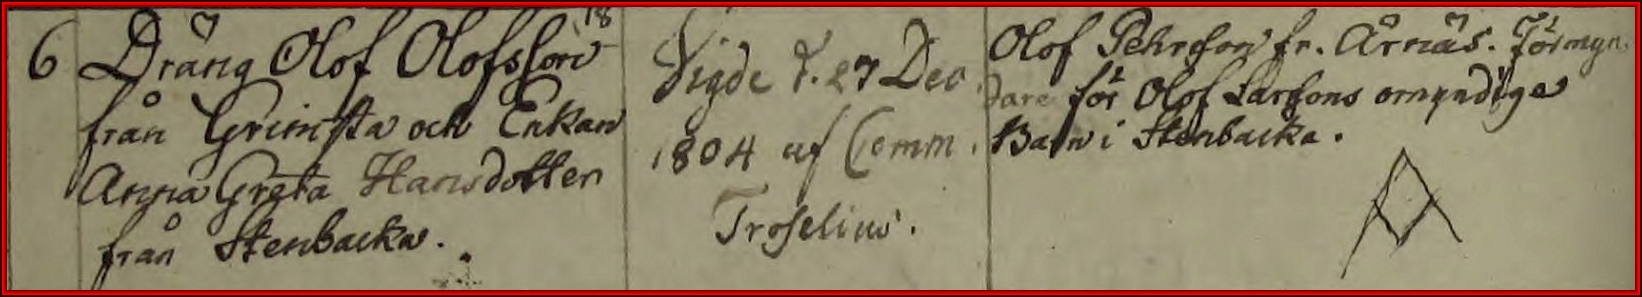 18
6 Dräng Olof Olofsson
från Grimsta och Enkan
Anna Greta Hansdotter
från Stenbacka.
Vigde d. 27 Dec
1804 af Comm.
Troselius.
Olof Pehrson fr. Årnäs. Förmyn
dare för Olof Larsons omyndige
Barn i Stenbacka.